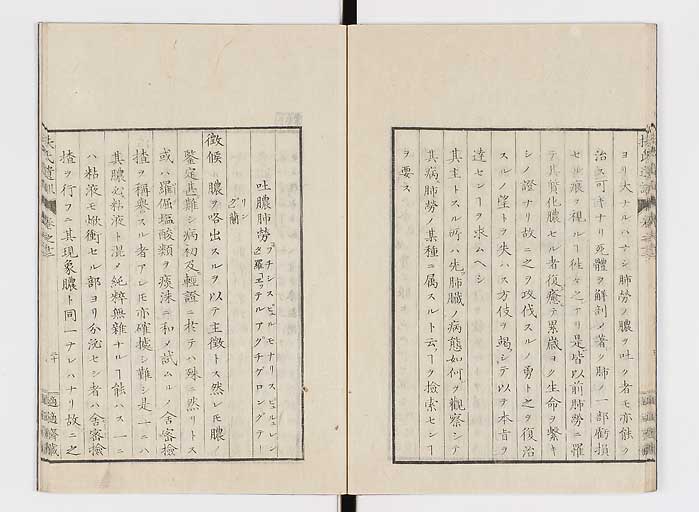 ヨリ大ナルハナシ肺勞ノ膿ヲ吐ク者モ亦能ク
治ス可キナリ死體ヲ解剖メ著ク肺ノ一部虧損
セル痕ヲ視ルヿ徃々之アリ是皆以前肺勞ニ罹
テ其質化膿セル者復癒テ累歳ヨク生命ヲ繫キ
シノ證ナリ故ニ之ヲ攻伐スルノ勇ト之ヲ復治
スルノ望トヲ失ハス方伎ヲ竭シテ以テ本旨ヲ
達センヿヲ求ムヘシ
其主トスル所ハ先肺臓ノ病態如何ヲ觀察シテ
其病肺勞ノ某種ニ属スルト云フヿヲ撿索センヿ
ヲ要ス
吐膿肺勞
徴候 膿ヲ咯出スルヲ以テ主徴トス然レ𪜈膿ノ
鑒定甚難シ病初及輕證ニ於テハ殊ニ然リトス
或ハ羅傴塩酸類ヲ痰沫ニ和メ試ムルノ舍密撿
揸ヲ稱譽スル者アレ𪜈亦確據シ難シ是一ニハ
其膿必粘液ト混メ純粹無雜ナルヿ能ハス一ニ
ハ粘液モ焮衝セル部ヨリ分泌セシ者ハ舍密撿
揸ヲ行フニ其現象膿ト同一ナレハナリ故ニ之
扶氏遺訓
卷之
適適齋藏